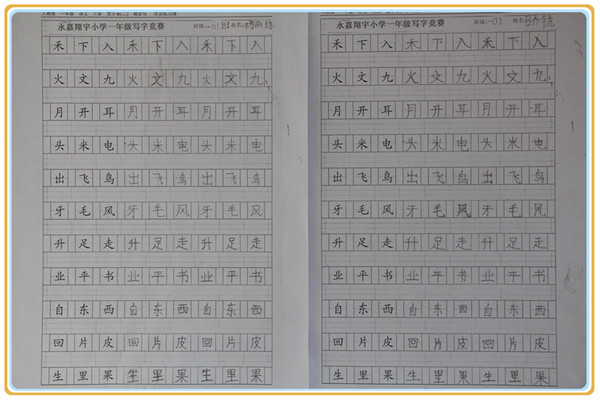 永嘉翔宇小学一年级写字竞赛 班级一(1)班 姓名
禾下入禾下入禾下入
火文九火文九火文九
月开耳月开耳月开耳
头米电头米电头米电
出飞鸟出飞鸟出飞鸟
牙毛风牙毛风牙毛风
升足走升足走升足走
业平书业平书业平书
自东西自东西自东西
回片皮回片皮回片皮
生里果生里果生里果
永嘉翔宇小学一年级写字竞赛 班级一(1) 姓名
禾下入禾下入禾下入
火文九火文九火文九
月开耳月开耳月开耳
头米电头米电头米电
出飞鸟出飞鸟出飞鸟
牙毛风牙毛风牙毛风
升足走升足走升足走
业平书业平书业平书
自东西自东西自东西
回片皮回片皮回片皮
生里果生里果生里果